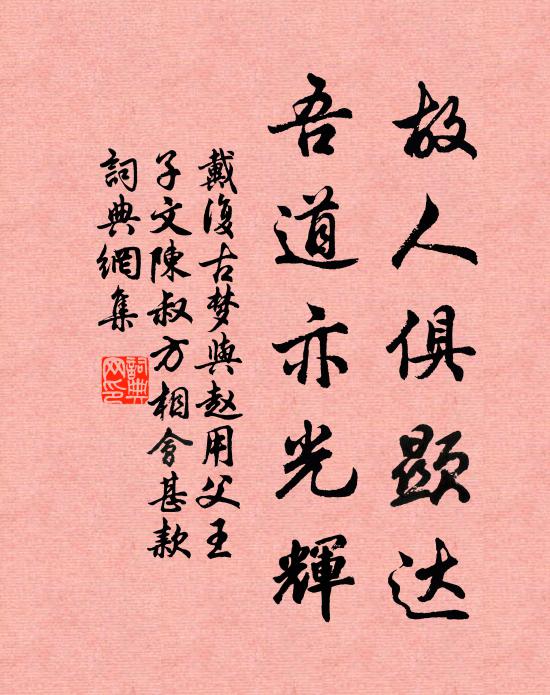 故人俱显达
吾道亦光輝
戴復古梦與赵用父王
子文陳叔方相會甚款
詞典網集
詞典
网印